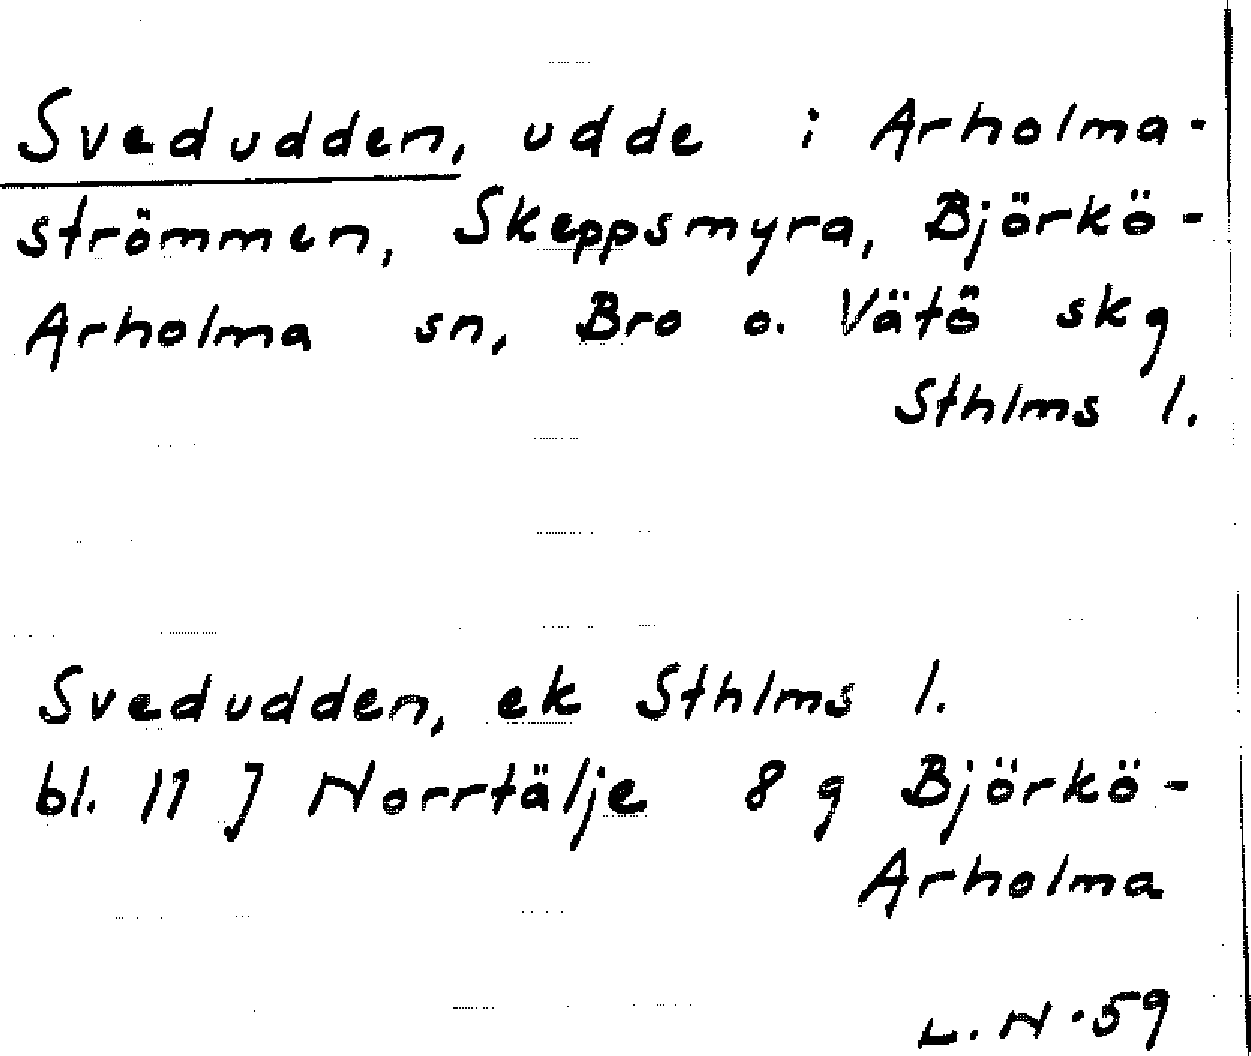 Svedudden, udde i Arholma-
strömmen, Skeppsmyra, Björkö-
Arholma sn, Bro o. Vätö skg
Sthlms l.
Svedudden, ek Sthlms l.
bl. 11 J Norrtälje 8 g Björkö-
Arholma
L. N. 59